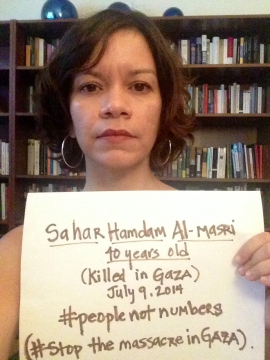 Sahar Hamdam Al-Masri
40 years old
(Killed in GAZA)
July 9, 2014
#people not numbers
(#Stop the massacre in GAZA).